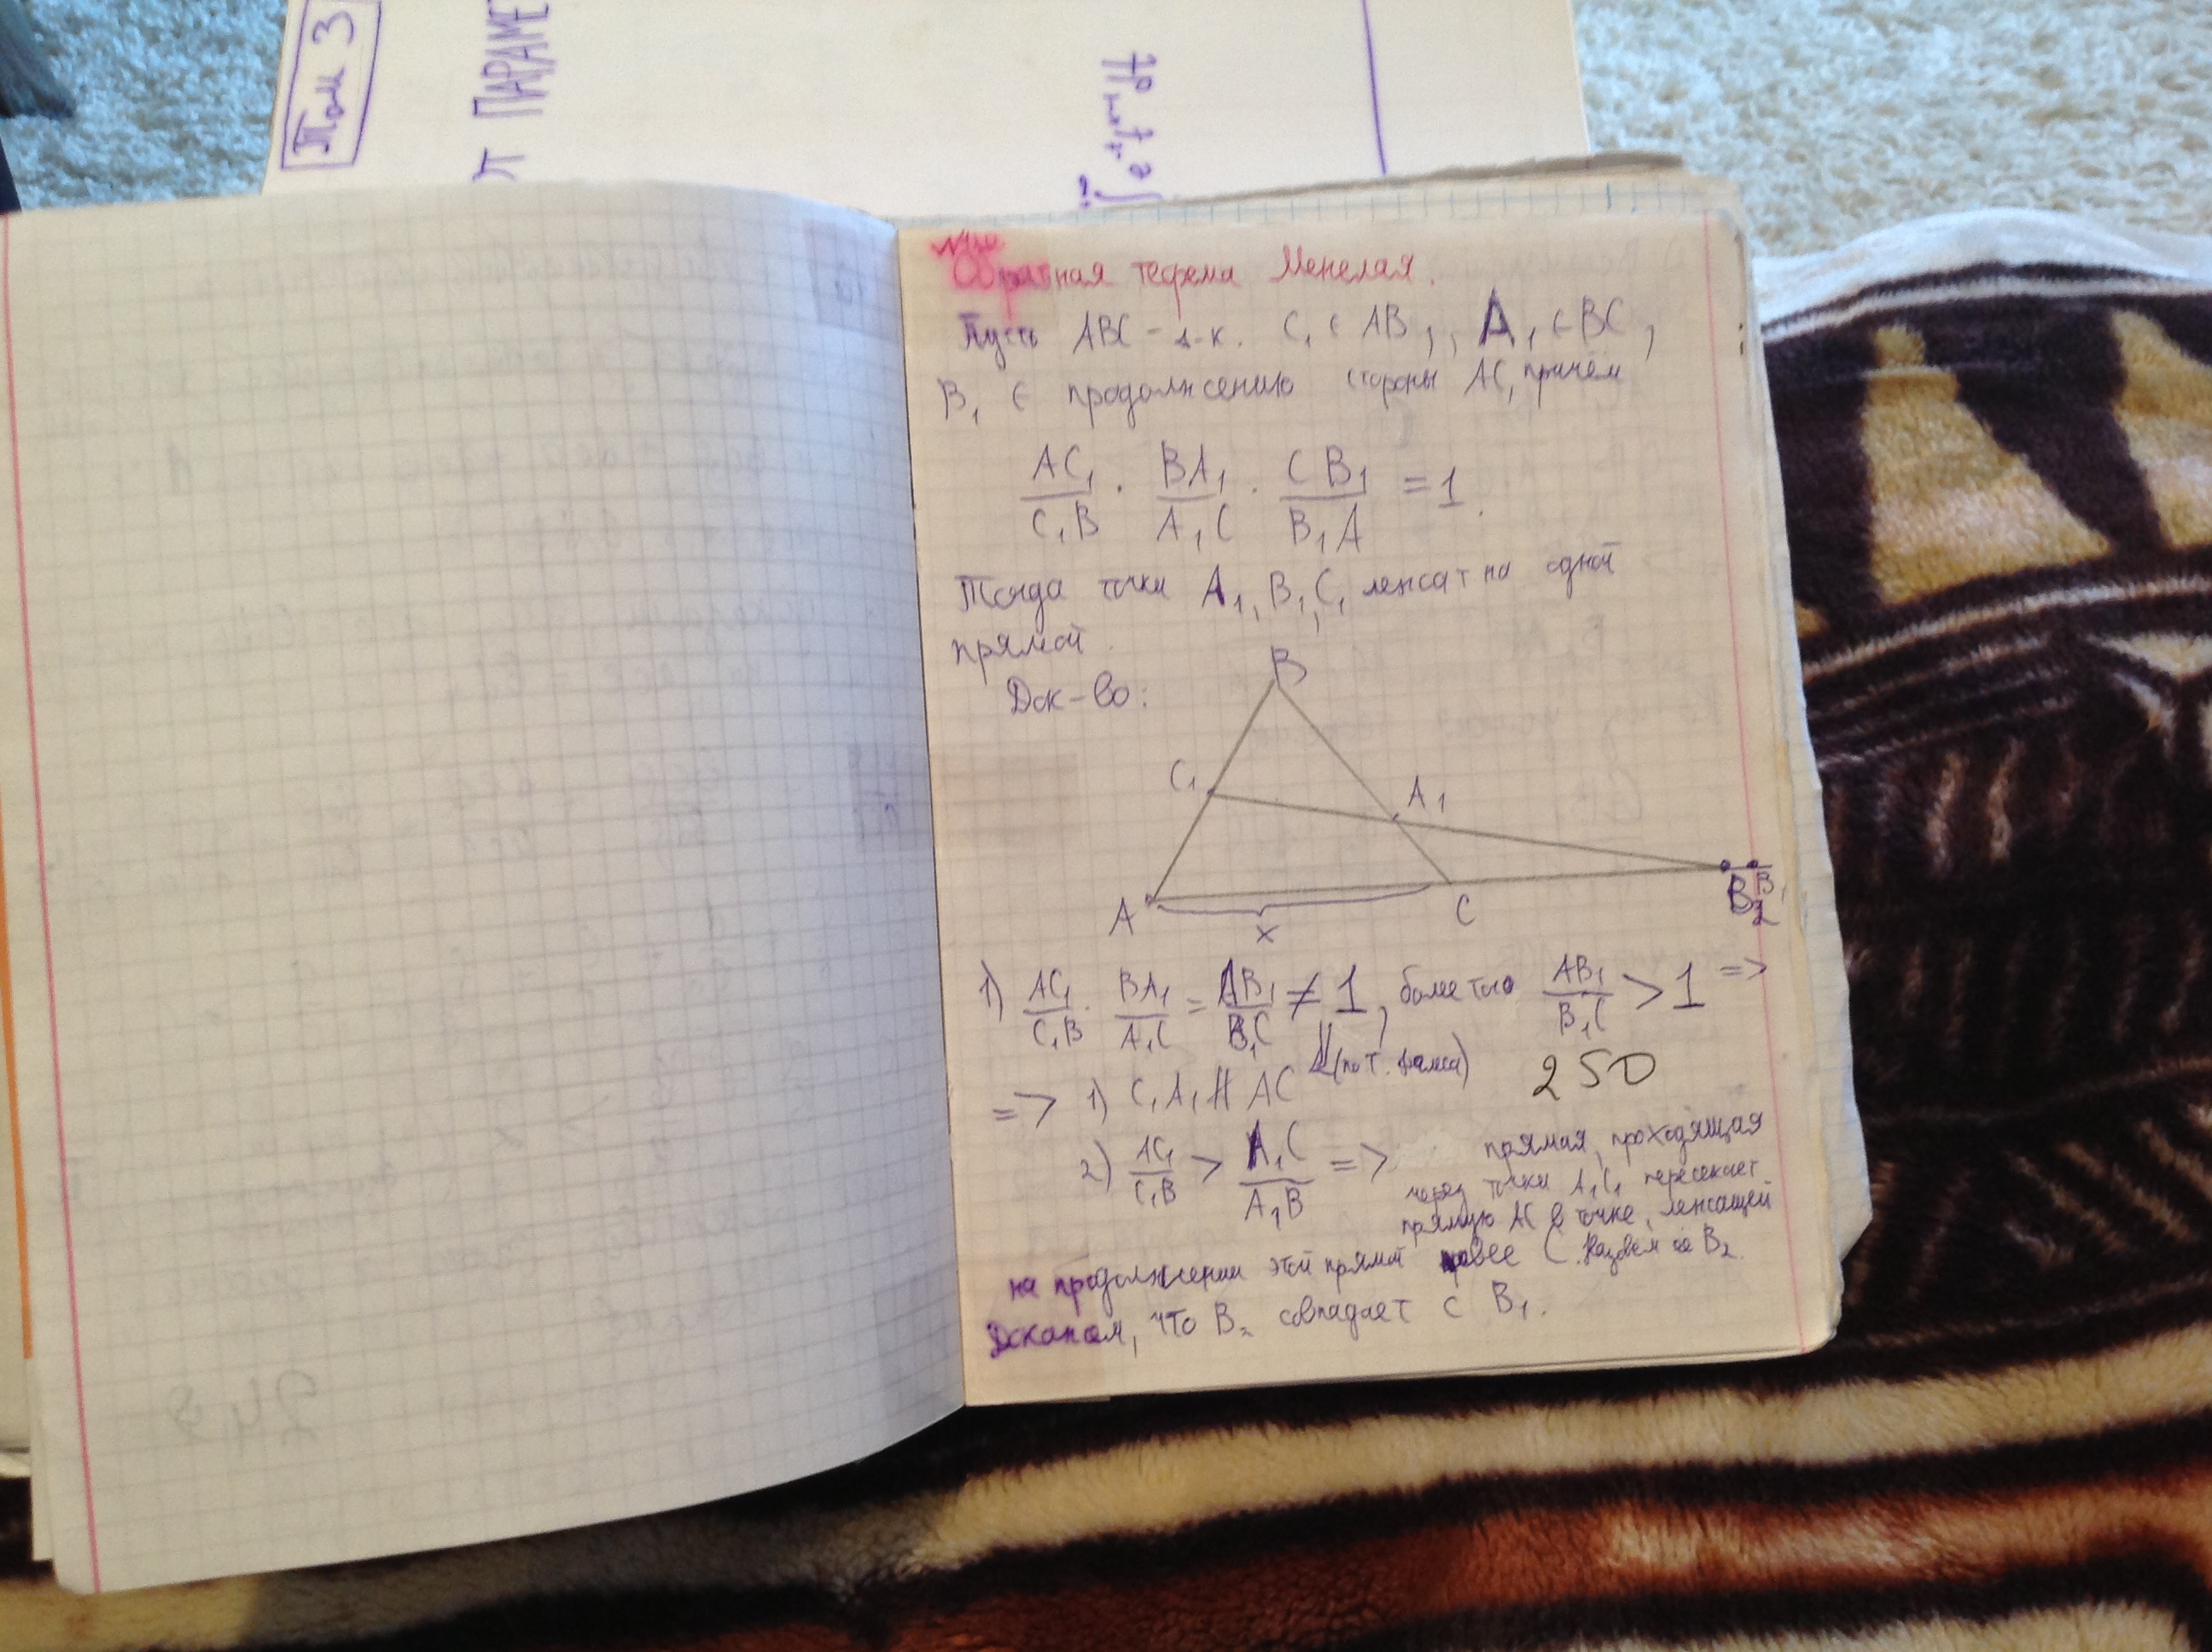 Том 3
П ПАРАМЕ
№120
Обратная теорема Менелая.
Пусть ABC - Δ-к. C₁ ∈ AB, , A₁ ∈ BC,
B₁ ∈ продолжению стороны AC, причём
AC₁/C₁B · BA₁/A₁C · CB₁/B₁A = 1.
Тогда точки A₁, B₁, C₁ лежат на одной
прямой.
Док-во:
B
C₁
A₁
A
C
B₂
B₁
x
1) AC₁/C₁B · BA₁/A₁C = AB₁/B₁C ≠ 1, более того AB₁/B₁C > 1 =>
=> 1) C₁A₁ ∦ AC (по т. Фалеса)
250
2) AC₁/C₁B > A₁C/A₁B => прямая, проходящая
через точки A₁C₁ пересекает
прямую AC в точке, лежащей
на продолжении этой прямой правее C. Назовём её B₂.
Докажем, что B₂ совпадает с B₁.
249